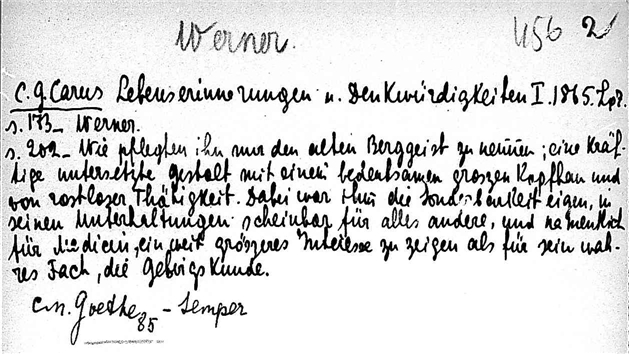 Werner. 456 2
C. G. Carus Lebenserinnerungen u. Denkwürdigkeiten I. 1865. Lpz.
s. 173 - Werner.
s. 202 - Wie pflegten ihn nur den alten Berggeist zu nennen; eine kräf-
tige untersetzte gestalt mit einem bedeutsamen groszen Kopfbau und
von rostloser Thätigkeit. Dabei war ihm die Sonderbarkeit eigen, in
seinen Unterhaltungen scheinbar für alles andere, und namentlich
für Medicin, ein weit gröszeres Interesse zu zeigen als für sein wah-
res Fach, die Gebirgskunde.
Goethe 85 - Semper